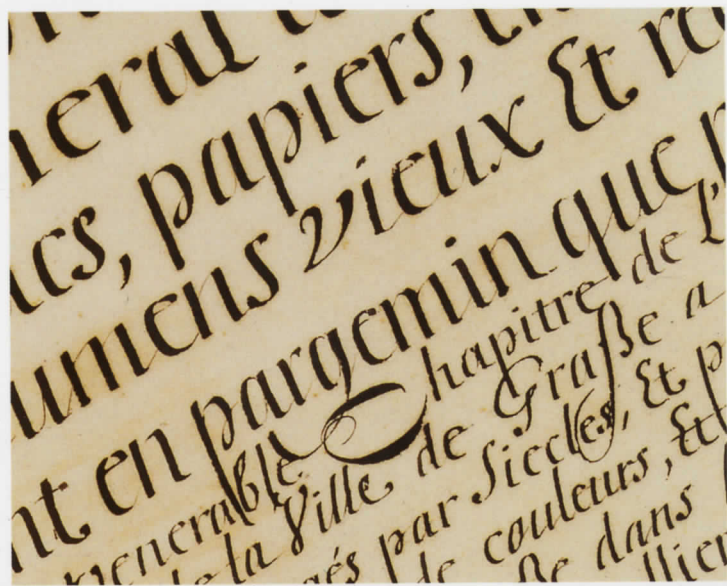 neral
acs, papiers,
umens vieux Et
nt en pargemin que
venerable Chapitre de L
de la Ville de Graße a
gés par Siecles, Et p
de couleurs, Et
ße dans
llier